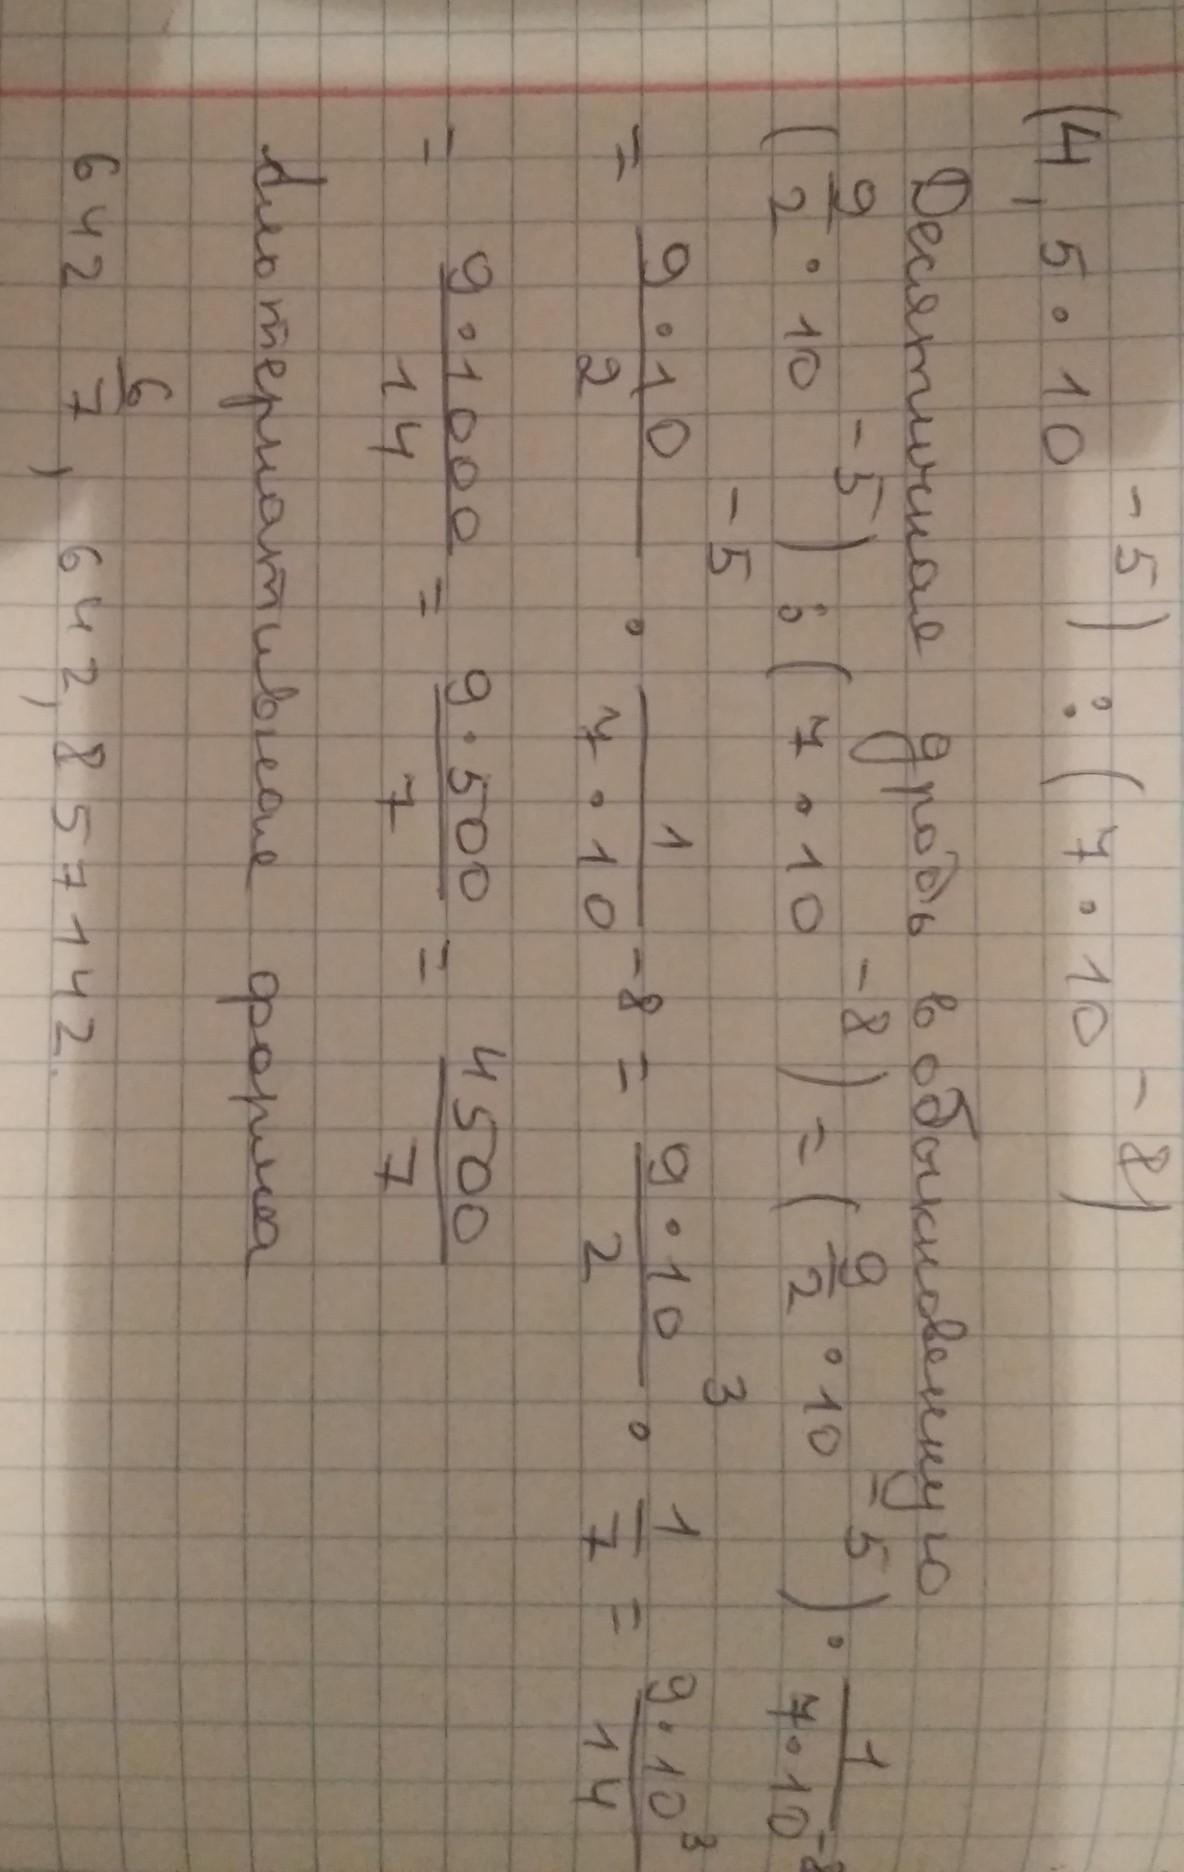 (4,5·10⁻⁵):(7·10⁻⁸)
Десятичная дробь в обыкновенную
(9/2·10⁻⁵):(7·10⁻⁸)=(9/2·10⁻⁵)·1/(7·10⁻⁸)
=(9·10⁻⁵)/2·1/(7·10⁻⁸)=(9·10³)/2·1/7=(9·10³)/14
=(9·1000)/14=(9·500)/7=4500/7
Альтернативная форма
642 6/7, 642,857142.